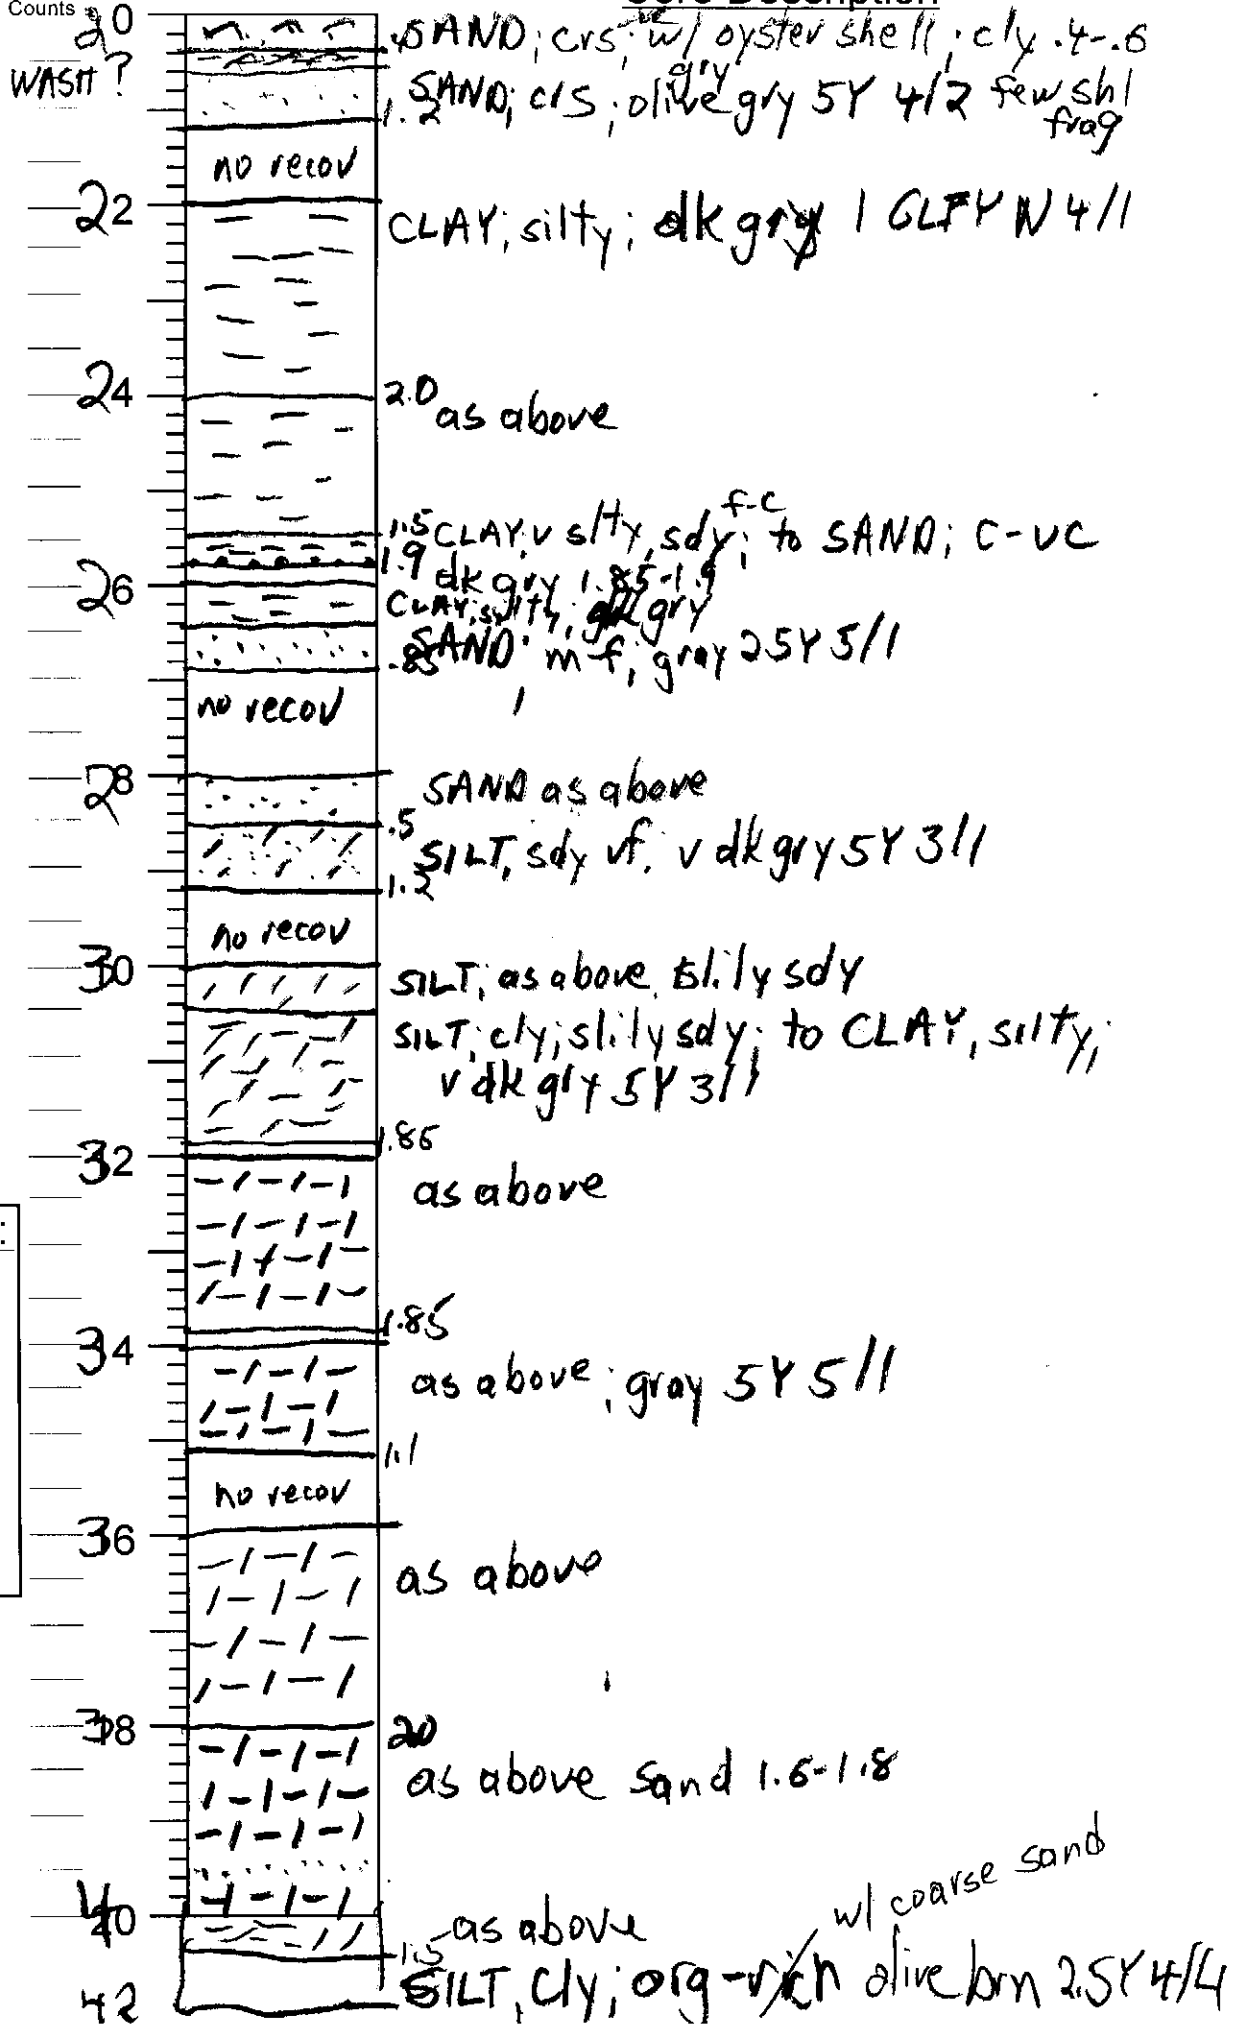 Counts
Core Description
20
.6 SAND; crs; w/ oyster shell; cly .4-.6
WASH ?
gry
SAND; crs; olive gry 5Y 4/2 few shl
frag
1.2
no recov
22
CLAY; silty; dk gry 1 GLEY N 4/1
24
2.0
as above
f-c
1.5 CLAY, v slty, sdy; to SAND; C-VC
1.9
dk gry 1.85-1.9
26
CLAY, silty, gry
SAND m f; gray 2.5Y 5/1
.85
no recov
28
SAND as above
.5
SILT, sdy vf. v dk gry 5Y 3/1
1.2
no recov
30
SILT; as above slily sdy
SILT; cly; slily sdy; to CLAY, silty;
v dk gry 5Y 3/1
1.85
32
as above
1.85
34
as above; gray 5Y 5/1
1.1
no recov
36
as above
38
2.0
as above sand 1.6-1.8
w/ coarse sand
40
as above
SILT, cly; org-rich olive brn 2.5Y 4/4
42